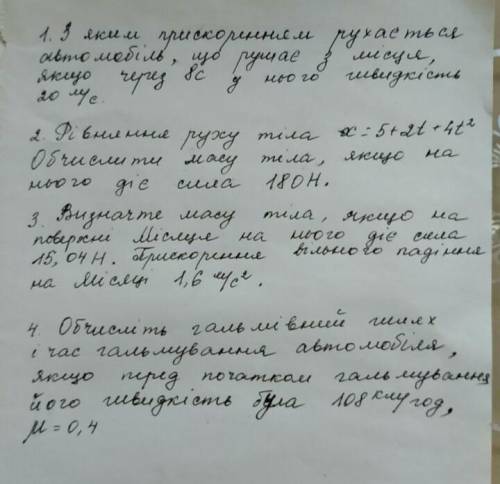 1. З яким прискоренням рухається
автомобіль, що рушає з місця,
якщо через 8с у нього швидкість
20 м/с.
2. Рівняння руху тіла x = 5+2t+4t²
Обчислити масу тіла, якщо на
нього діє сила 180Н.
3. Визначте масу тіла, якщо на
поверхні Місяця на нього діє сила
15,04Н. Прискорення вільного падіння
на Місяці 1,6 м/с².
4. Обчисліть гальмівний шлях
і час гальмування автомобіля,
якщо перед початком гальмування
його швидкість була 108 км/год,
μ = 0,4